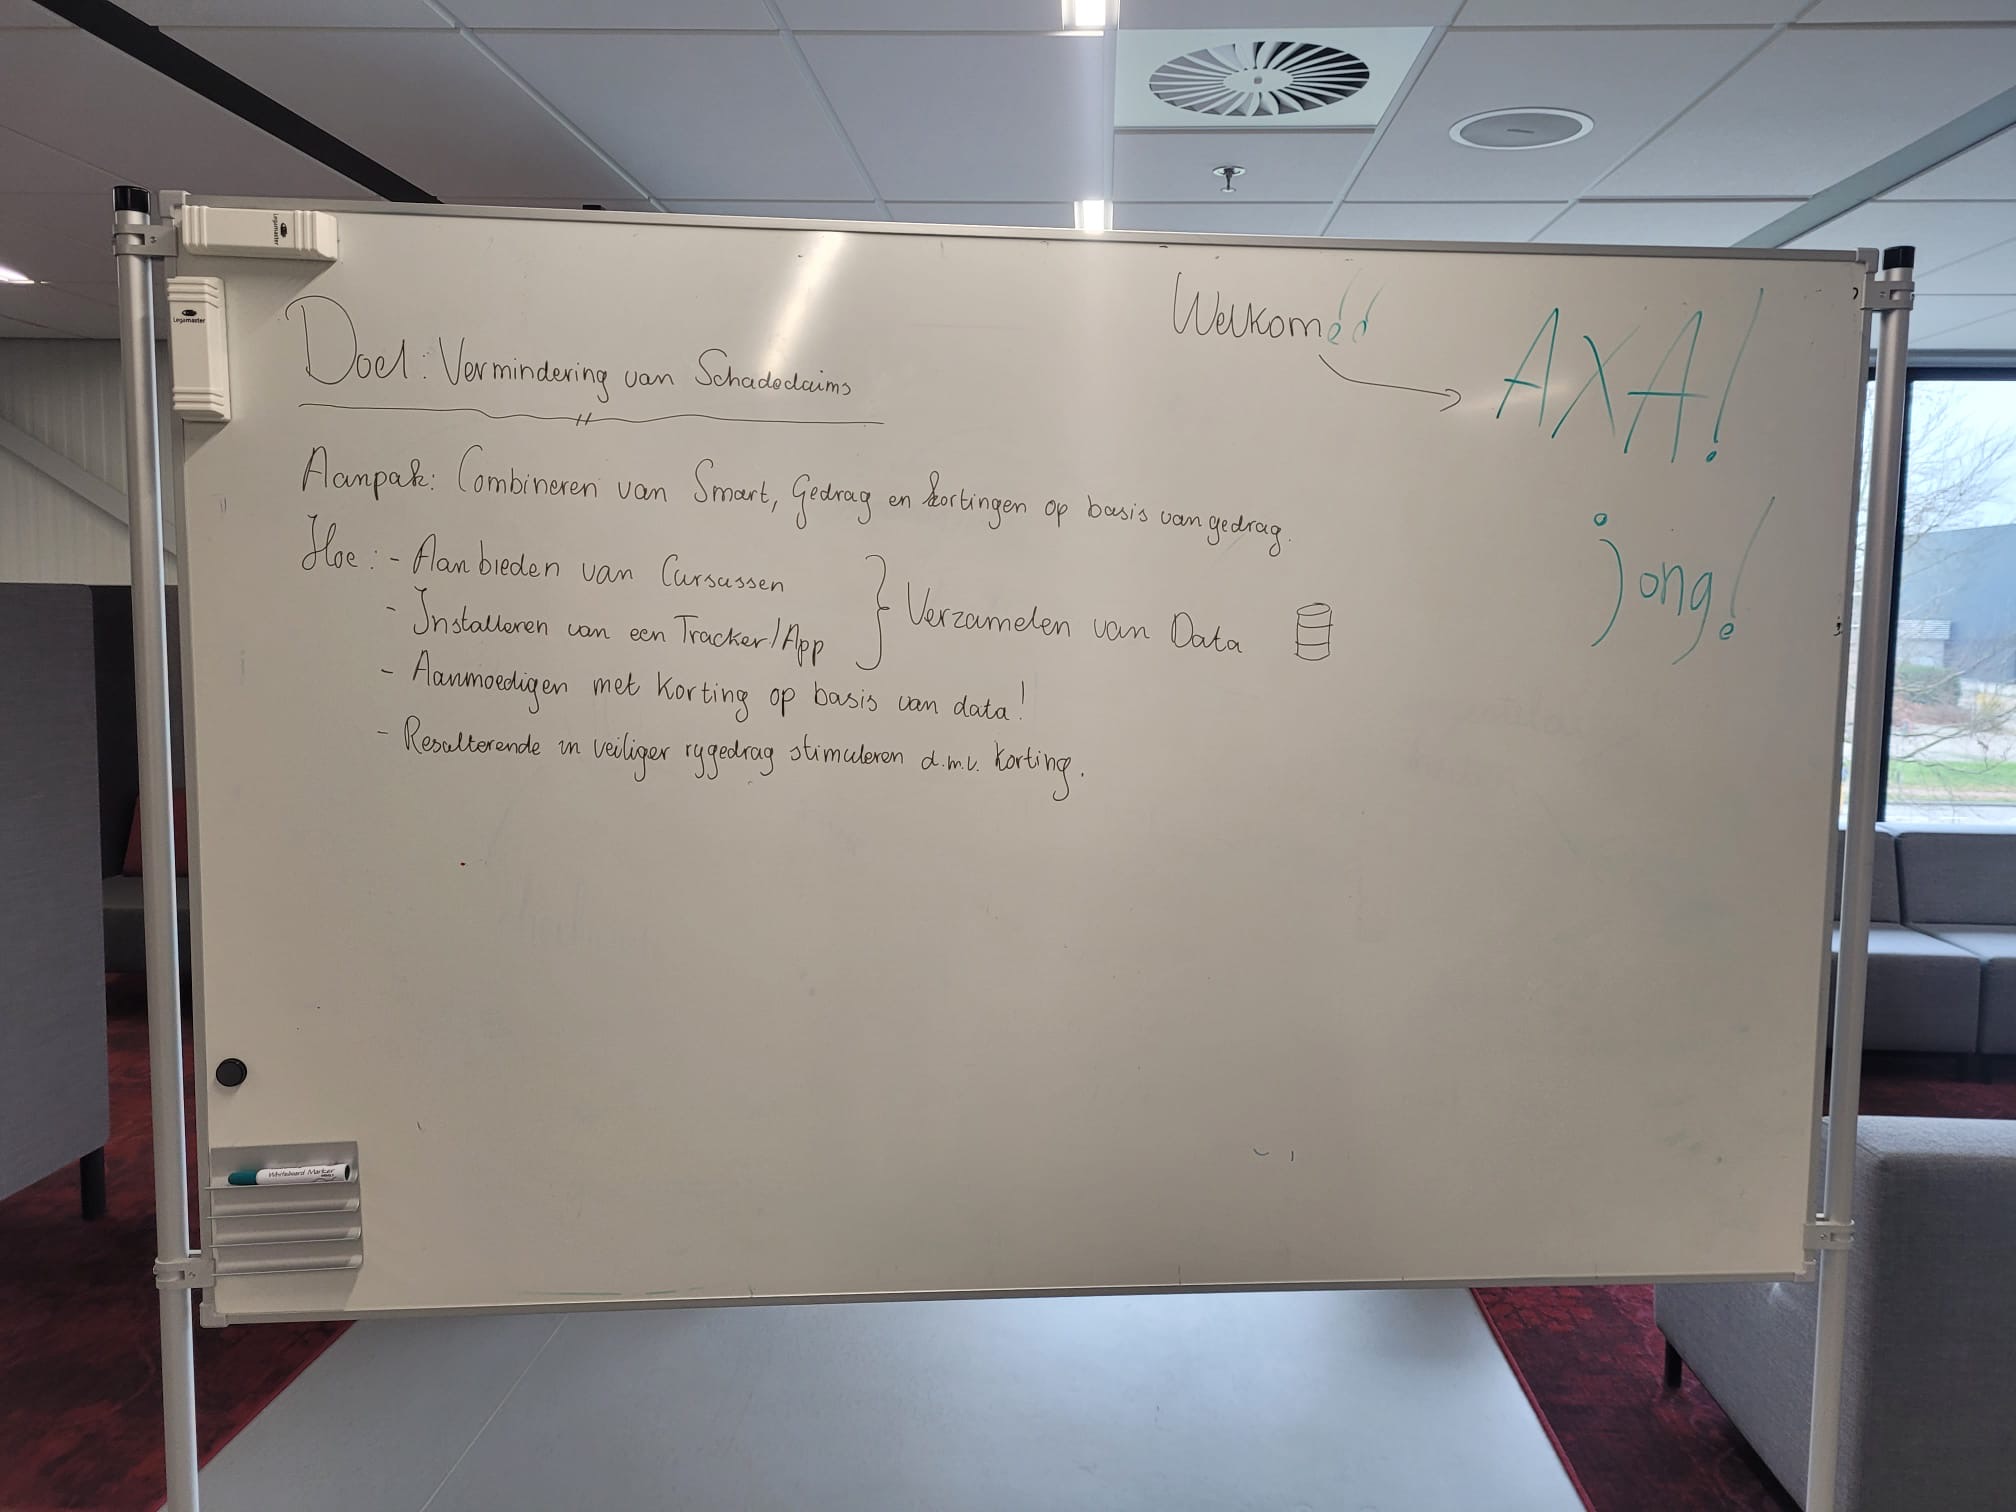 Legamaster
Legamaster
Welkom!!
AXA!
jong!
Doel: Vermindering van Schadeclaims
Aanpak: Combineren van Smart, Gedrag en kortingen op basis van gedrag.
Hoe: - Aanbieden van Cursussen
- Installeren van een Tracker/App
} Verzamelen van Data
- Aanmoedigen met Korting op basis van data!
- Resulterende in veiliger rijgedrag stimuleren d.m.v. Korting.
Whiteboard Marker